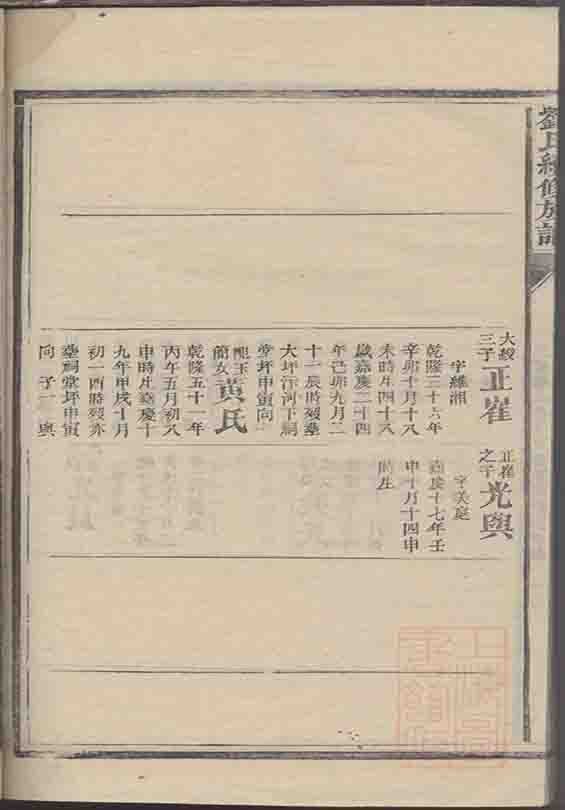 劉氏續修族譜
大綬三子 正崔
字維湘
乾隆三十六年
辛卯十月十八
未時生四十八
歲嘉慶二十四
年己卯九月二
十一辰時歿墓
大坪汀河下嗣
堂坪申寅向
配玉簡女 黃氏
乾隆五十一年
丙午五月初八
申時生嘉慶十
九年甲戌十月
初一酉時歿亦
塟祠堂坪申寅
向 子一 輿
正崔之子 光輿
字美庭
嘉慶十七年壬
申十月十四申
時生